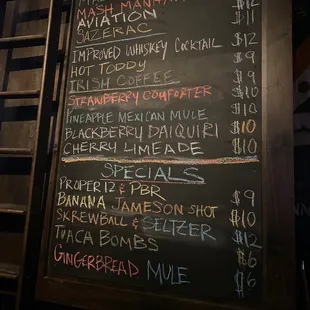 MASH MANHA $12
AVIATION $11
SAZERAC
IMPROVED WHISKEY COCKTAIL $12
HOT TODDY $9
IRISH COFFEE $9
STRAWBERRY COMFORTER $10
PINEAPPLE MEXICAN MULE $10
BLACKBERRY DAIQUIRI $10
CHERRY LIMEADE $10
SPECIALS
PROPER 12 & PBR $9
BANANA JAMESON SHOT $10
SKREWBALL & SELTZER $12
TUACA BOMBS $6
GINGERBREAD MULE $6